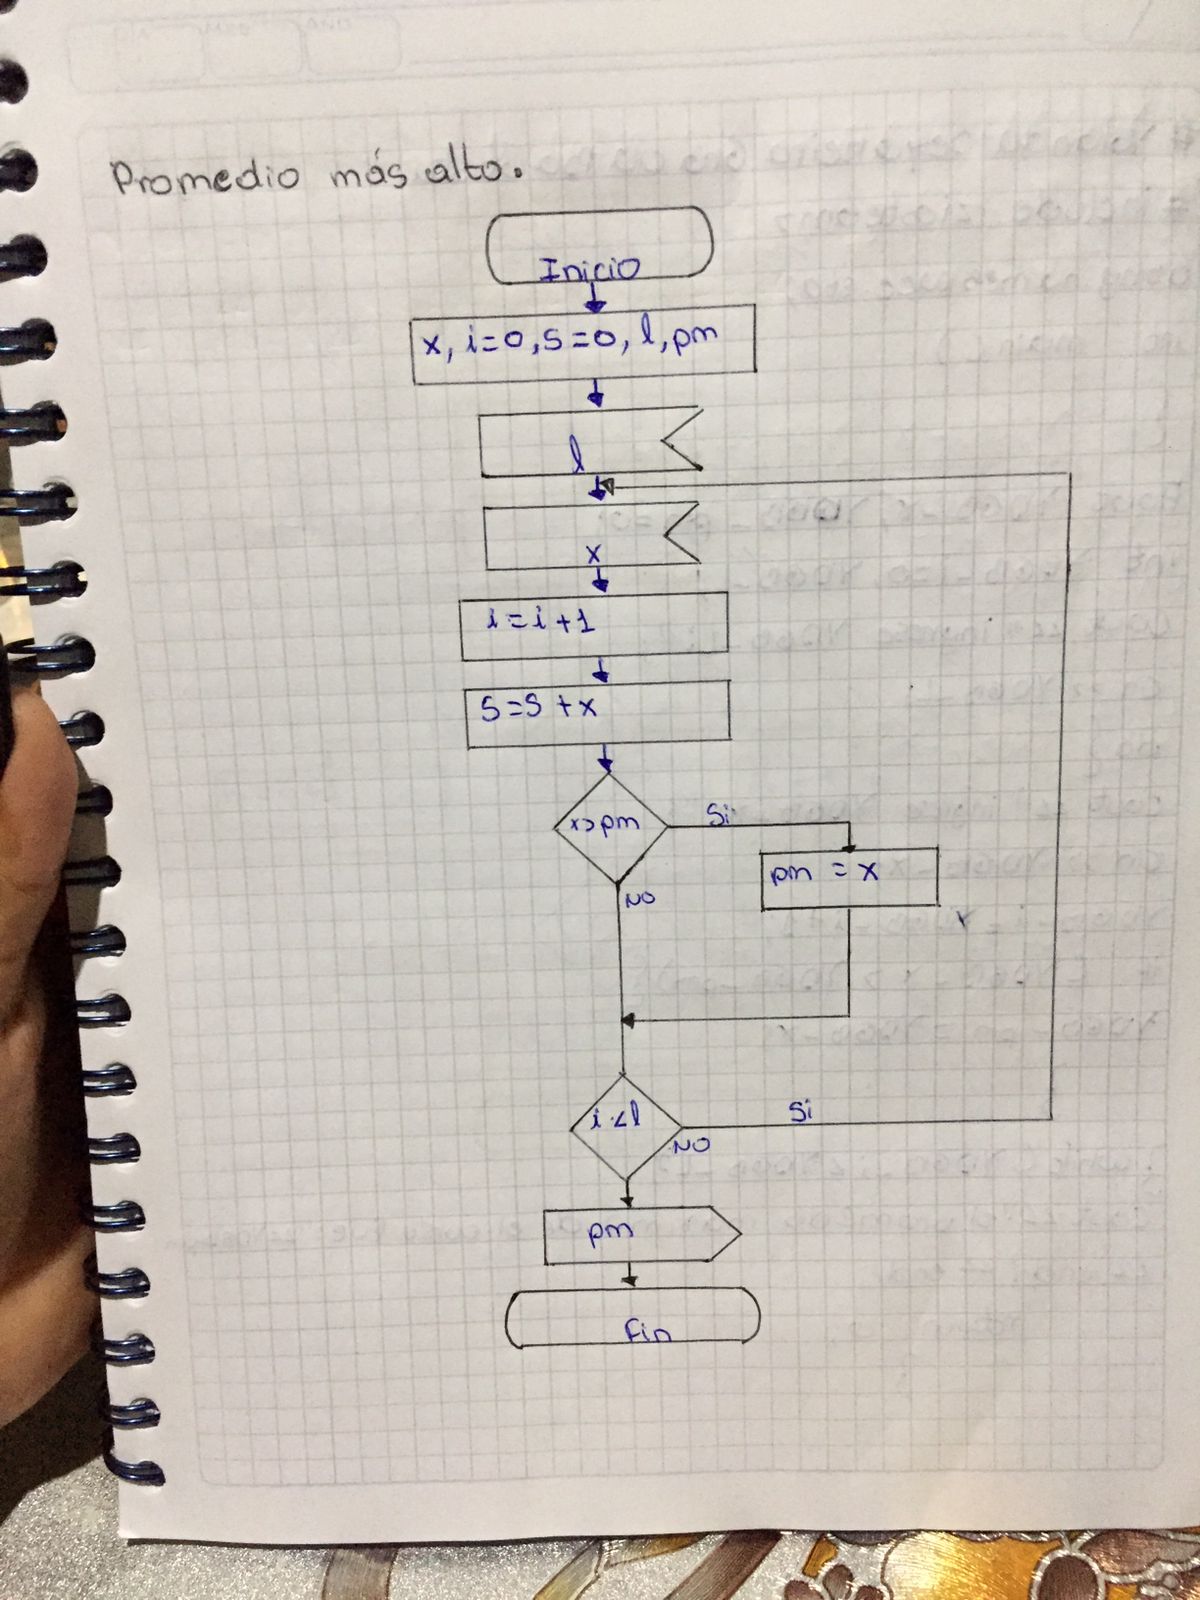 Promedio más alto.
Inicio
x, i=0, s=0, l, pm
l
x
i=i+1
s=s+x
x>pm
Si
pm = x
NO
i<l
Si
NO
pm
Fin